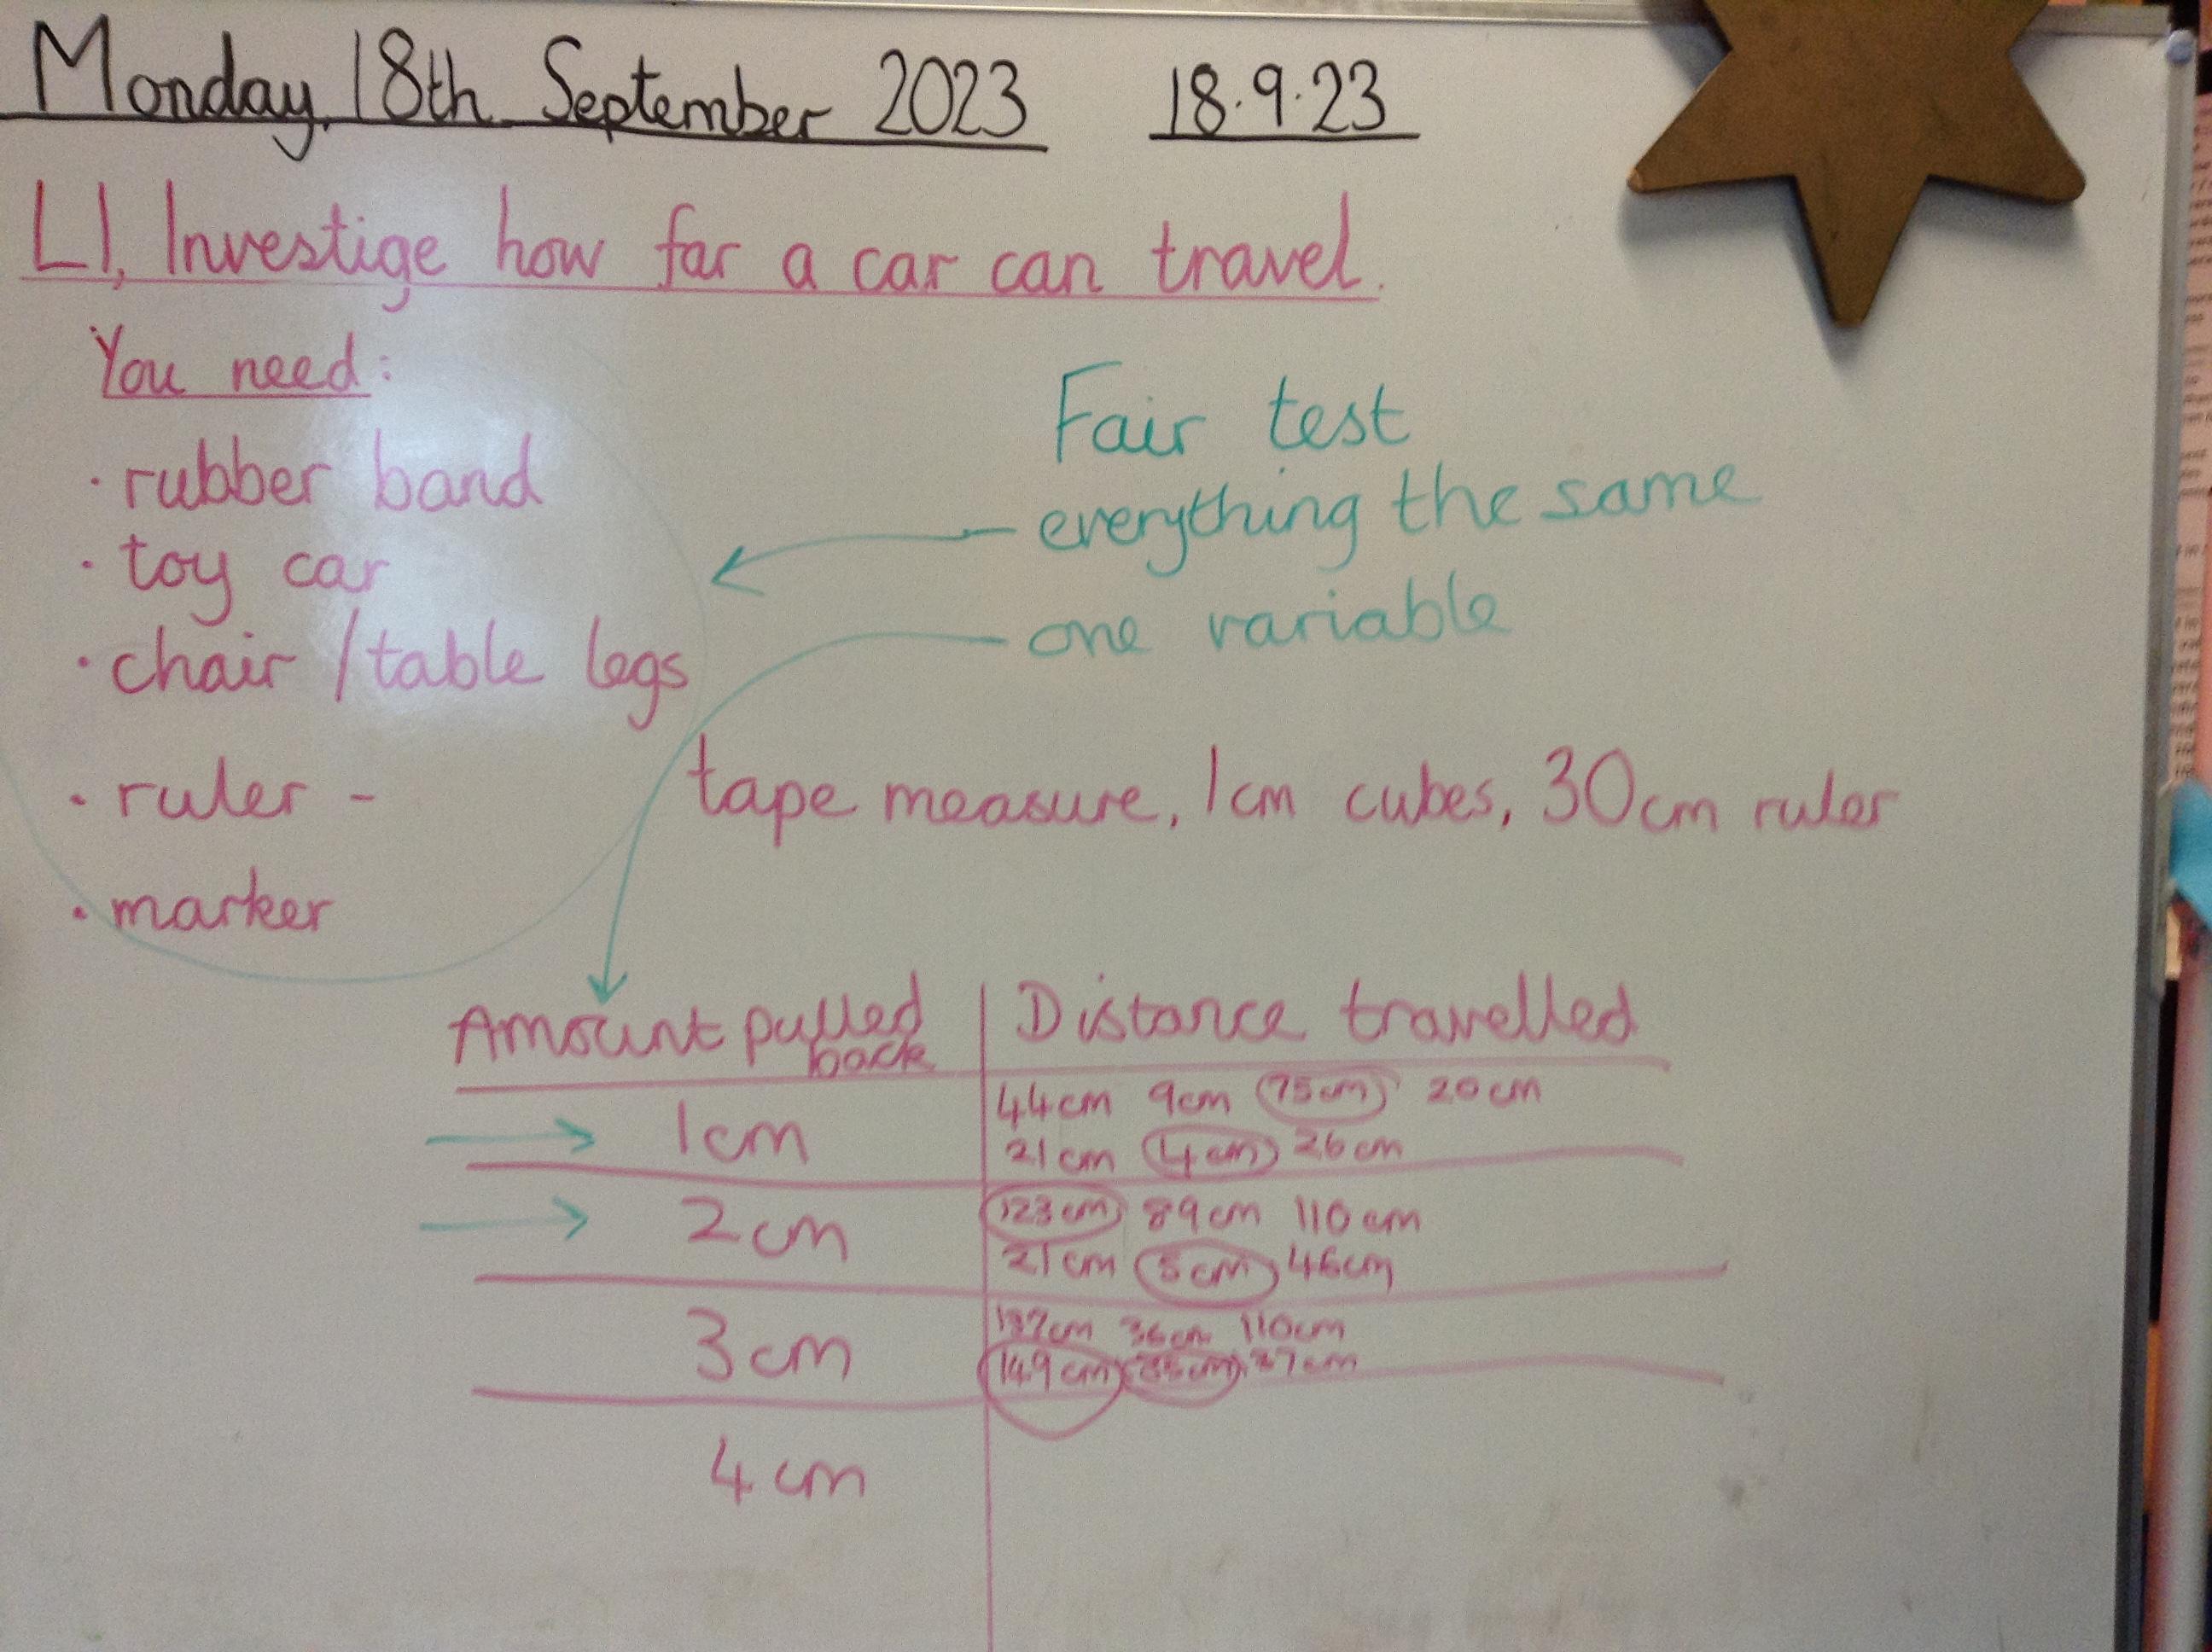 Monday, 18th September 2023 18.9.23
LI, Investige how far a car can travel.
You need:
· rubber band
· toy car
· chair / table legs
· ruler - tape measure, 1cm cubes, 30cm ruler
· marker
Fair test
- everything the same
- one variable
Amount pulled back | Distance travelled
1cm
44cm 9cm 75cm 20cm
21cm 4cm 26cm
2cm
123cm 89cm 110cm
21cm 5cm 46cm
3cm
137cm 36cm 110cm
149cm 37cm
4cm